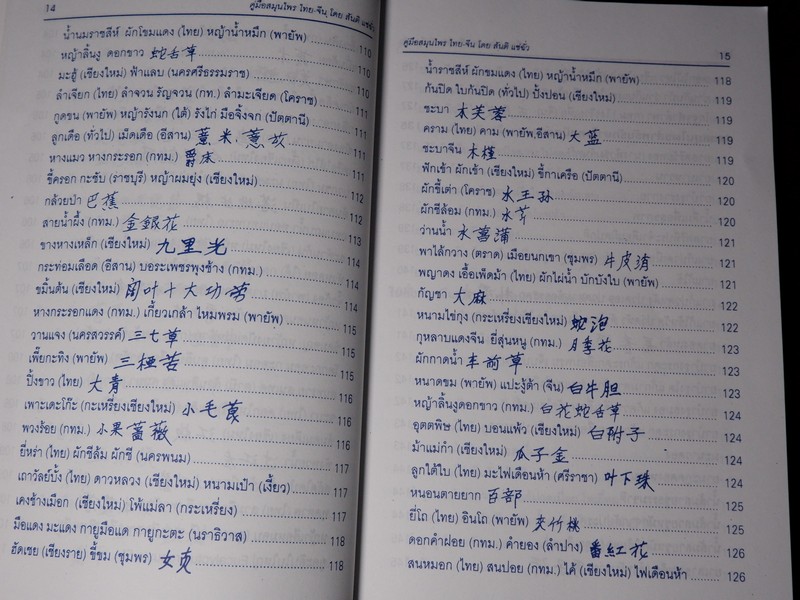 14
คู่มือสมุนไพร ไทย-จีน โดย สันติ แซ่ฉั่ว
น้ำนมราชสีห์ ผักโขมแดง (ไทย) หญ้าน้ำหมึก (พายัพ) 110
หญ้าลิ้นงู ดอกขาว 蛇舌草 110
มะฮู้ (เชียงใหม่) ฟ้าแลบ (นครศรีธรรมราช) 110
ลำเจียก (ไทย) ลำจวน รัญจวน (กท.) ลำมะเจียด (โคราช) 110
กูดขน (พายัพ) หญ้ารังนก (ใต้) รังไก่ มือจิ้งจก (ปัตตานี) 111
ลูกเดือย (ทั่วไป) เม็ดเดือย (อีสาน) 薏米, 薏苡 111
หางแมว หางกระรอก (กทม.) 爵床 111
ขี้ครอก กะชับ (ราชบุรี) หญ้าผมยุ่ง (เชียงใหม่) 111
กล้วยป่า 芭蕉 112
สายน้ำผึ้ง (กทม.) 金銀花 112
ขางหางเหล็ก (เชียงใหม่) 九里光 113
กระท่อมเลือด (อีสาน) บอระเพชรพุงช้าง (กทม.) 114
ขมิ้นต้น (เชียงใหม่) 阔叶十大功劳 114
หางกระรอกแดง (กทม.) เกี้ยวเกล้า ใหมพรม (พายัพ) 114
วานแจง (นครสวรรค์) 三七草 115
เพี้ยกะทิง (พายัพ) 三椏苦 115
ปิ้งขาว (ไทย) 大青 115
เพาะเดะโก๊ะ (กะเหรี่ยงเชียงใหม่) 小毛莨 116
พวงร้อย (กทม.) 小果薔薇 116
ยี่หร่า (ไทย) ผักชีล้ม ผักชี (นครพนม) 116
เถาวัลย์บั้ง (ไทย) ดาวหลวง (เชียงใหม่) หนามเป๋า (เงี้ยว) 117
เคงช้างเมือก (เชียงใหม่) โพ้แม่ลา (กระเหรี่ยง) 117
มือแดง มะแดง กายูมือแด กายูกะตะ (นราธิวาส) 118
ฮัดเชย (เชียงราย) ขี้ขม (ชุมพร) 女贞 118
คู่มือสมุนไพร ไทย-จีน โดย สันติ แซ่ฉั่ว
15
น้ำราชสีห์ ผักขมแดง (ไทย) หญ้าน้ำหมึก (พายัพ) 118
กันปิด ใบกันปิด (ทั่วไป) ปั้งปอน (เชียงใหม่) 119
ชะบา 木芙蓉 119
คราม (ไทย) คาม (พายัพ,อีสาน) 大蓝 119
ชะบาจีน 木槿 119
ฟักเข้า ผักเข้า (เชียงใหม่) ขี้กาเครือ (ปัตตานี) 120
ผักขี้เต่า (โคราช) 水王孙 120
ผักชีล้อม (กทม.) 水芹 120
ว่านน้ำ 水菖蒲 121
พาไล้กวาง (ตราด) เมือยนกเขา (ชุมพร) 牛皮消 121
พญาดง เอื้อเพ็ดม้า (ไทย) ผักไผ่น้ำ บักบังใบ (พายัพ) 121
กัญชา 大麻 122
หนามไข่กุ่ง (กระเหรี่ยงเชียงใหม่) 蛇泡 122
กุหลาบแดงจีน ยี่สุ่นหนู (กทม.) 月季花 123
ผักกาดน้ำ 车前草 123
หนาดขม (พายัพ) แปะงู้ต้า (จีน) 白牛胆 123
หญ้าลิ้นงูดอกขาว (กทม.) 白花蛇舌草 124
อุตตพิษ (ไทย) บอนแพ้ว (เชียงใหม่) 白附子 124
ม้าแม่กำ (เชียงใหม่) 瓜子金 124
ลูกใต้ใบ (ไทย) มะไฟเดือนห้า (ศรีราชา) 叶下珠 124
หนอนตายยาก 百部 125
ยี่โถ (ไทย) อินโถ (พายัพ) 夹竹桃 125
ดอกคำฝอย (กทม.) คำยอง (ลำปาง) 番紅花 126
สนหมอก (ไทย) สนปอย (กทม.) ไค้ (เชียงใหม่) ไฟเดือนห้า 126